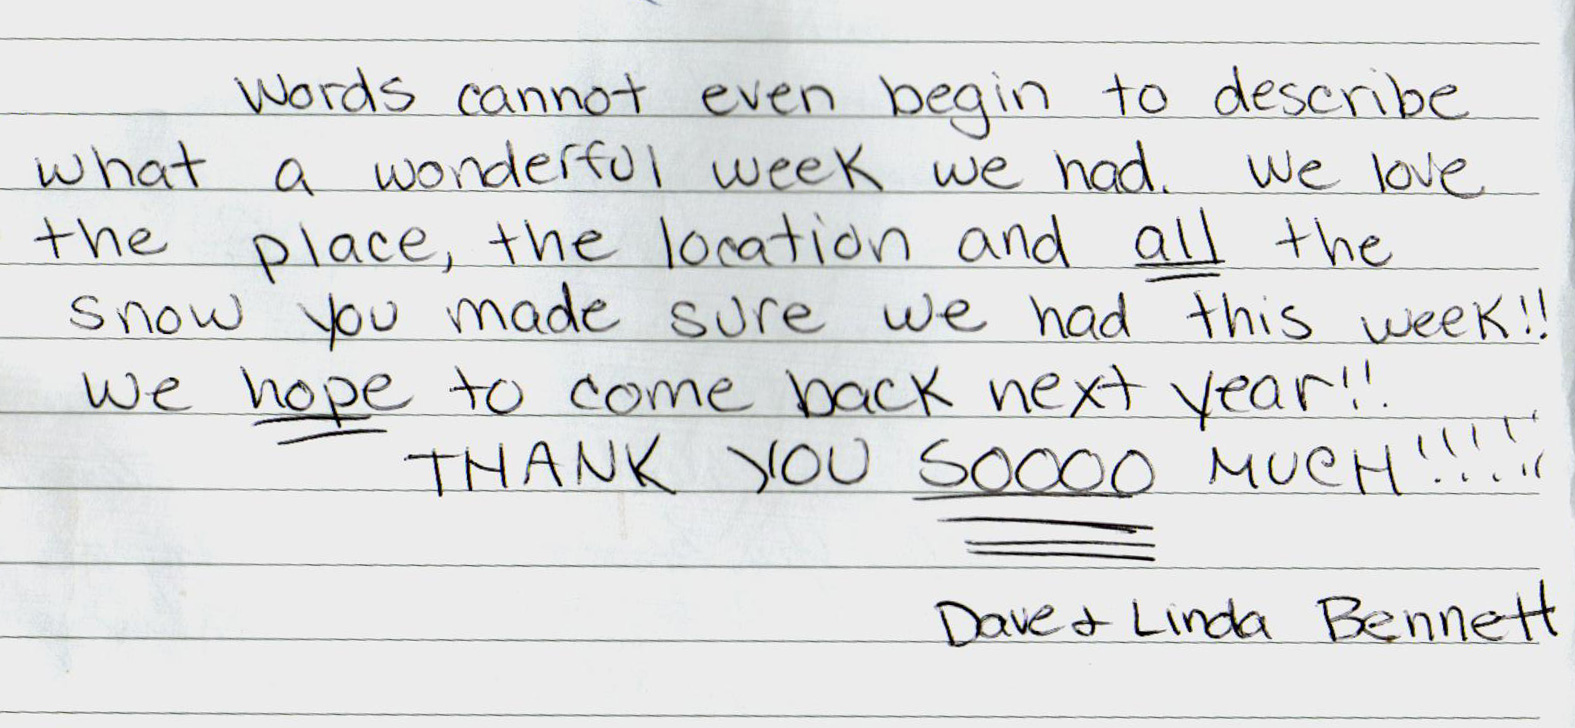 Words cannot even begin to describe
what a wonderful week we had. We love
the place, the location and all the
snow you made sure we had this week!!
We hope to come back next year!!
THANK YOU SOOOO MUCH!!!!!!
Dave & Linda Bennett